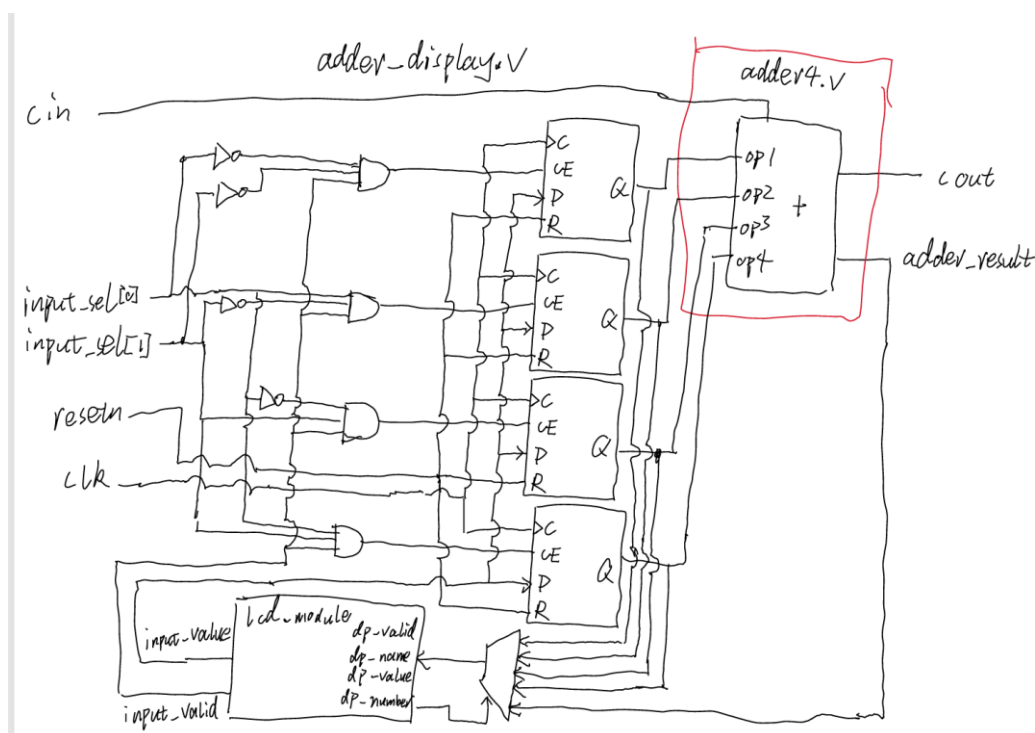 adder_display.v
adder4.v
cin
C
CE
D
R
Q
op1
op2
op3
op4
+
cout
adder_result
input_sel[0]
input_sel[1]
C
CE
D
R
Q
resetn
clk
C
CE
D
R
Q
C
CE
D
R
Q
input_value
input_valid
lcd_module
dp_valid
dp_name
dp_value
dp_number